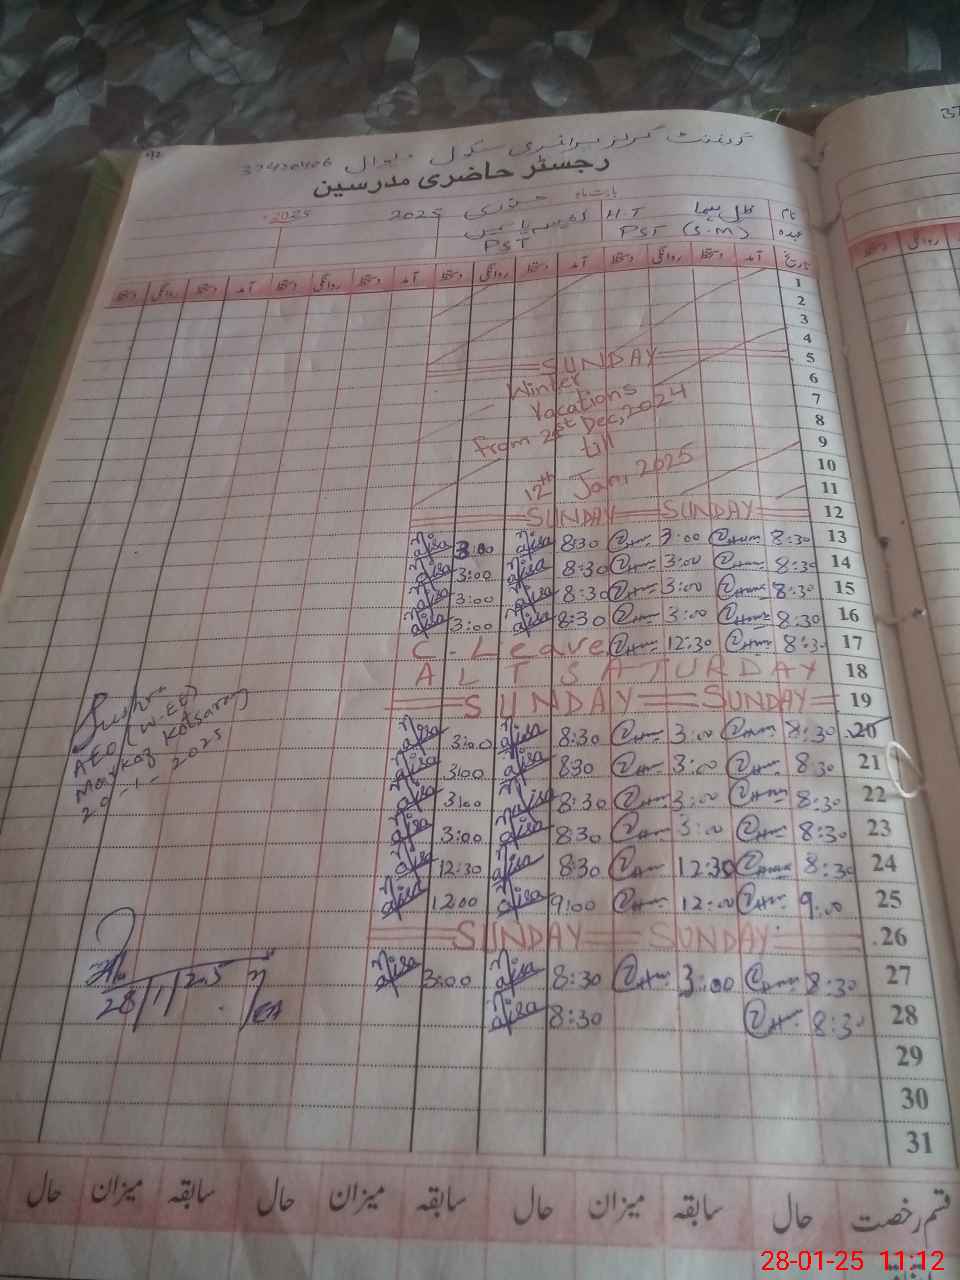 گورنمنٹ گرلز پرائمری سکول 37430406
رجسٹر حاضری مدرسین
بابت ماہ جنوری 2025 2025
نام H.T
عہدہ PST (S.M) PST
تاریخ آمد دستخط روانگی دستخط آمد دستخط روانگی دستخط آمد دستخط روانگی دستخط آمد دستخط روانگی دستخط
1
2
3
4
SUNDAY 5
Winter 6
Vacations 7
from 21st Dec, 2024 8
till 9
10
12th Jan, 2025 11
SUNDAY SUNDAY 12
Nisa 3:00 Nisa 8:30 3:00 8:30 13
Nisa 3:00 Nisa 8:30 3:00 8:30 14
Nisa 3:00 Nisa 8:30 3:00 8:30 15
Nisa 3:00 Nisa 8:30 3:00 8:30 16
C-Leave 12:30 8:30 17
ALT SATURDAY 18
SUNDAY SUNDAY 19
Nisa 3:00 Nisa 8:30 3:00 8:30 20
Nisa 3:00 Nisa 830 3:00 8:30 21
Nisa 3:00 Nisa 8:30 3:00 8:30 22
Nisa 3:00 Nisa 8:30 3:00 8:30 23
Nisa 12:30 Nisa 8:30 12:30 8:30 24
Nisa 12:00 Nisa 9:00 12:00 9:00 25
SUNDAY SUNDAY 26
Nisa 3:00 Nisa 8:30 3:00 8:30 27
Nisa 8:30 8:30 28
29
30
31
AEO (W-EE)
Markaz Kotsarang
20-1-2025
28/1/25
قسم رخصت حال سابقہ میزان حال سابقہ میزان حال سابقہ میزان حال
28-01-25 11:12